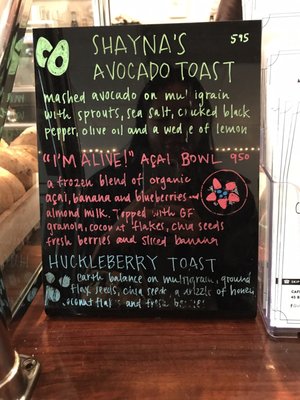 SHAYNA'S 595
AVOCADO TOAST
mashed avocado on mul igrain
with sprouts, sea salt, c acked black
pepper, olive oil and a wed e of lemon
"I'M ALIVE!" AÇAI BOWL 950
a frozen blend of organic
açai, banana and blueberries and
almond milk. Topped with GF
granola, coconut flakes, chia seeds
fresh berries and sliced banana
HUCKLEBERRY TOAST
earth balance on multigrain, ground
flax seeds, chia seeds, a drizzle of honey
coconut flakes and fresh berries